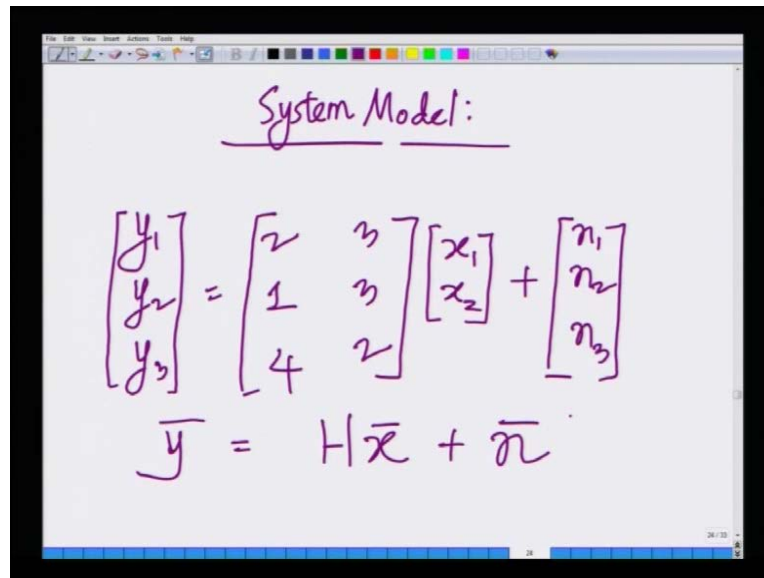 File Edit View Insert Actions Tools Help
B I
System Model:
[y₁ y₂ y₃] = [2 3; 1 3; 4 2] [x₁ x₂] + [n₁ n₂ n₃]
y̅ = Hx̅ + n̅
24 / 33
28